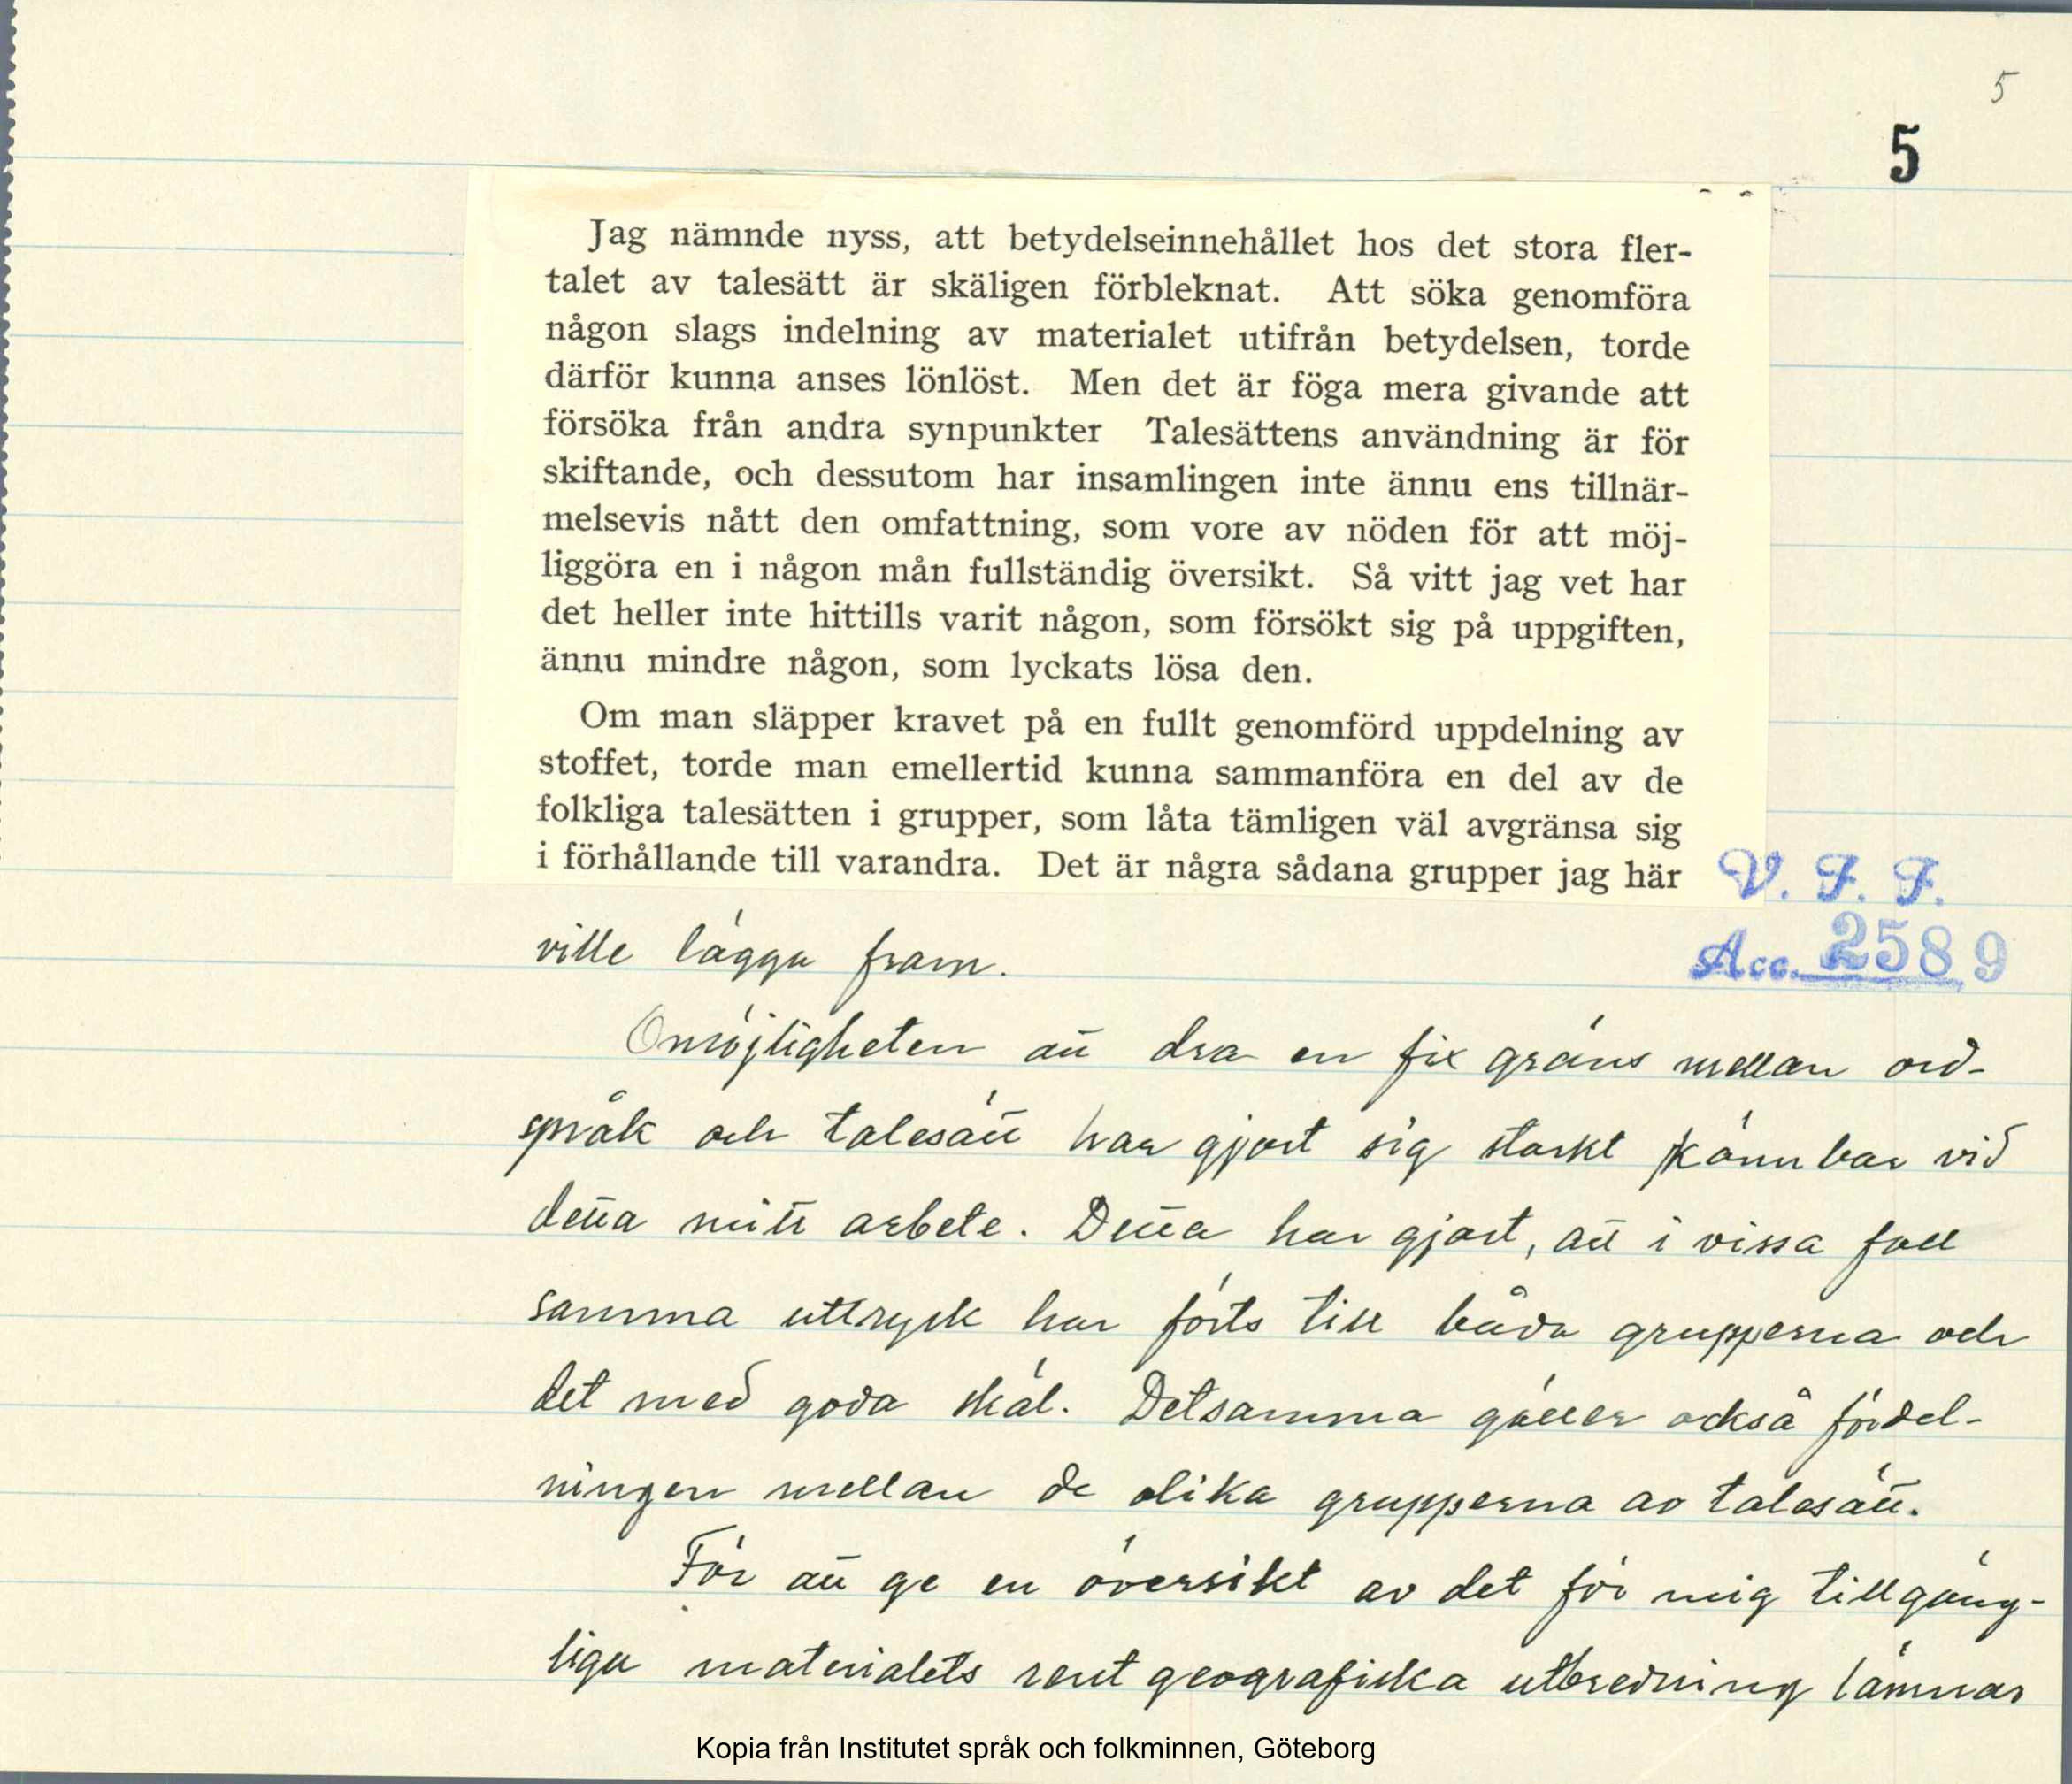 5
5
Jag nämnde nyss, att betydelseinnehållet hos det stora fler-
talet av talesätt är skäligen förbleknat. Att söka genomföra
någon slags indelning av materialet utifrån betydelsen, torde
därför kunna anses lönlöst. Men det är föga mera givande att
försöka från andra synpunkter Talesättens användning är för
skiftande, och dessutom har insamlingen inte ännu ens tillnär-
melsevis nått den omfattning, som vore av nöden för att möj-
liggöra en i någon mån fullständig översikt. Så vitt jag vet har
det heller inte hittills varit någon, som försökt sig på uppgiften,
ännu mindre någon, som lyckats lösa den.
Om man släpper kravet på en fullt genomförd uppdelning av
stoffet, torde man emellertid kunna sammanföra en del av de
folkliga talesätten i grupper, som låta tämligen väl avgränsa sig
i förhållande till varandra. Det är några sådana grupper jag här
V. F. F.
Acc. 2589
ville lägga fram.
Omöjligheten att dra en fix gräns mellan ord-
språk och talesätt har gjort sig starkt kännbar vid
detta mitt arbete. Detta har gjort, att i vissa fall
samma uttryck har förts till båda grupperna och
det med goda skäl. Detsamma gäller också fördel-
ningen mellan de olika grupperna av talesätt.
För att ge en översikt av det för mig tillgäng-
liga materialets rent geografiska utbredning lämnas
Kopia från Institutet språk och folkminnen, Göteborg